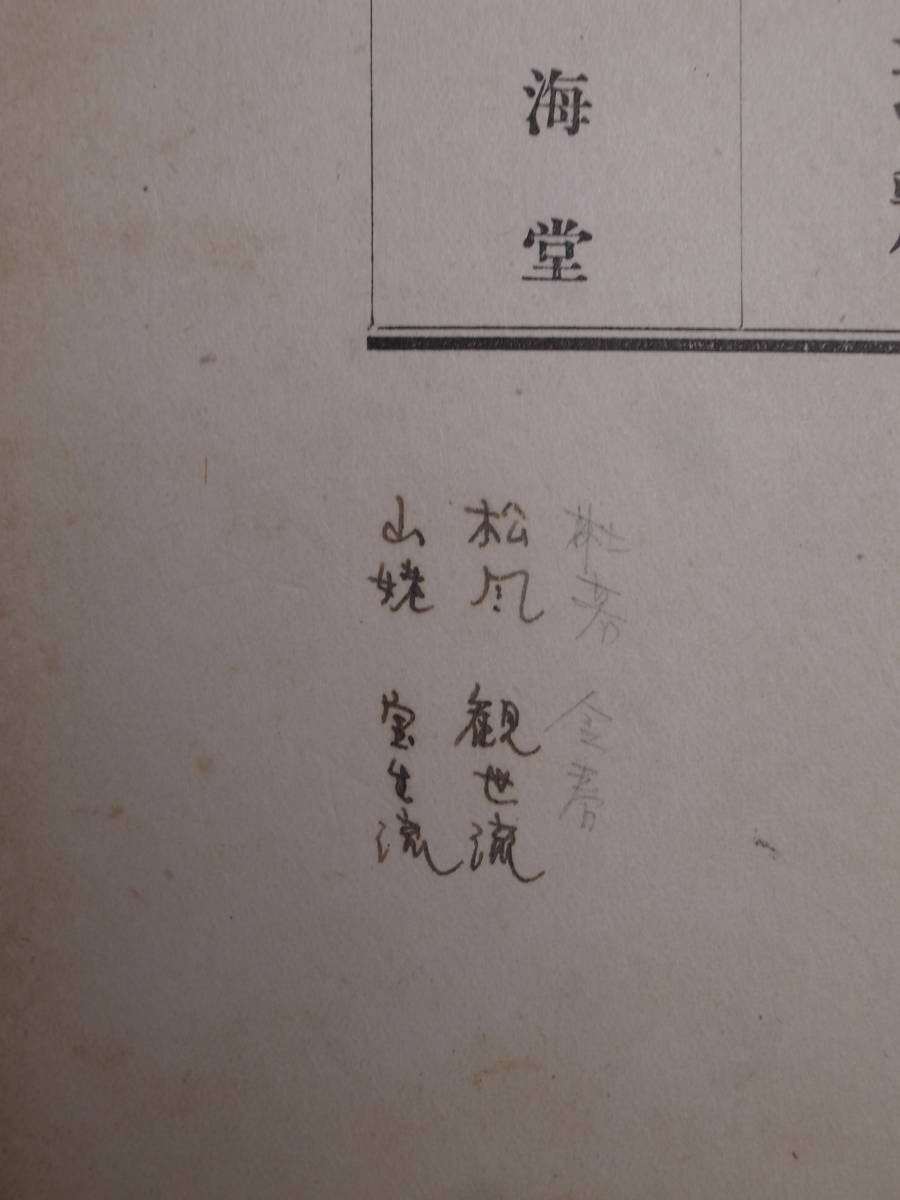 海堂
杜若 金春
松風 観世流
山姥 宝生流